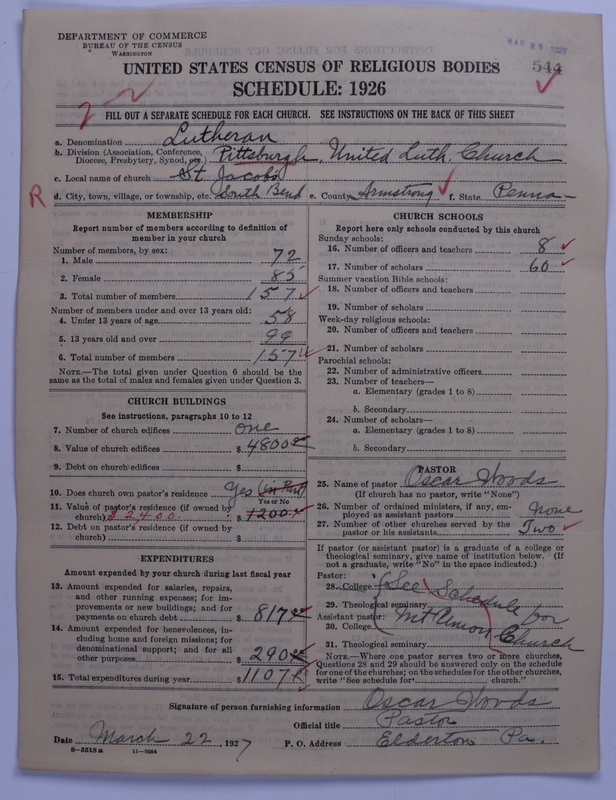 DEPARTMENT OF COMMERCE
BUREAU OF THE CENSUS
WASHINGTON
MAR 26 1927
544
UNITED STATES CENSUS OF RELIGIOUS BODIES
SCHEDULE: 1926
2-2
FILL OUT A SEPARATE SCHEDULE FOR EACH CHURCH. SEE INSTRUCTIONS ON THE BACK OF THIS SHEET
a. Denomination Lutheran
b. Division (Association, Conference, Diocese, Presbytery, Synod, etc.) Pittsburgh, United Luth. Church
c. Local name of church St Jacobs
R
d. City, town, village, or township, etc. South Bend e. County Armstrong f. State Penna-
MEMBERSHIP
Report number of members according to definition of
member in your church
Number of members, by sex:
1. Male 72
2. Female 85
3. Total number of members 157
Number of members under and over 13 years old:
4. Under 13 years of age 58
5. 13 years old and over 99
6. Total number of members 157
NOTE.—The total given under Question 6 should be the
same as the total of males and females given under Question 3.
CHURCH BUILDINGS
See instructions, paragraphs 10 to 12
7. Number of church edifices one
8. Value of church edifices $ 4800
9. Debt on church edifices $
10. Does church own pastor's residence yes (in Part)
Yes or No
11. Value of pastor's residence (if owned by
church) $2400. $ 1200
12. Debt on pastor's residence (if owned by
church) $
EXPENDITURES
Amount expended by your church during last fiscal year
13. Amount expended for salaries, repairs,
and other running expenses; for im-
provements or new buildings; and for
payments on church debt $ 817
14. Amount expended for benevolences, in-
cluding home and foreign missions; for
denominational support; and for all
other purposes $ 290
15. Total expenditures during year $ 1107
CHURCH SCHOOLS
Report here only schools conducted by this church
Sunday schools:
16. Number of officers and teachers 8
17. Number of scholars 60
Summer vacation Bible schools:
18. Number of officers and teachers
19. Number of scholars
Week-day religious schools:
20. Number of officers and teachers
21. Number of scholars
Parochial schools:
22. Number of administrative officers
23. Number of teachers—
a. Elementary (grades 1 to 8)
b. Secondary
24. Number of scholars—
a. Elementary (grades 1 to 8)
b. Secondary
PASTOR
25. Name of pastor Oscar Woods
(If church has no pastor, write "None")
26. Number of ordained ministers, if any, em-
ployed as assistant pastors None
27. Number of other churches served by the
pastor or his assistants Two
If pastor (or assistant pastor) is a graduate of a college or
theological seminary, give name of institution below. (If
not a graduate, write "No" in the space indicated.)
Pastor:
28. College (See Schedule for
29. Theological seminary
Assistant pastor: Mt Union
30. College Church
31. Theological seminary
NOTE.—Where one pastor serves two or more churches,
Questions 28 and 29 should be answered only on the schedule
for one of the churches; on the schedules for the other churches,
write "See schedule for church."
Signature of person furnishing information Oscar Woods
Official title Pastor
Date March 22, 1927 P. O. Address Elderton Pa.
8-5518 a 11-9034